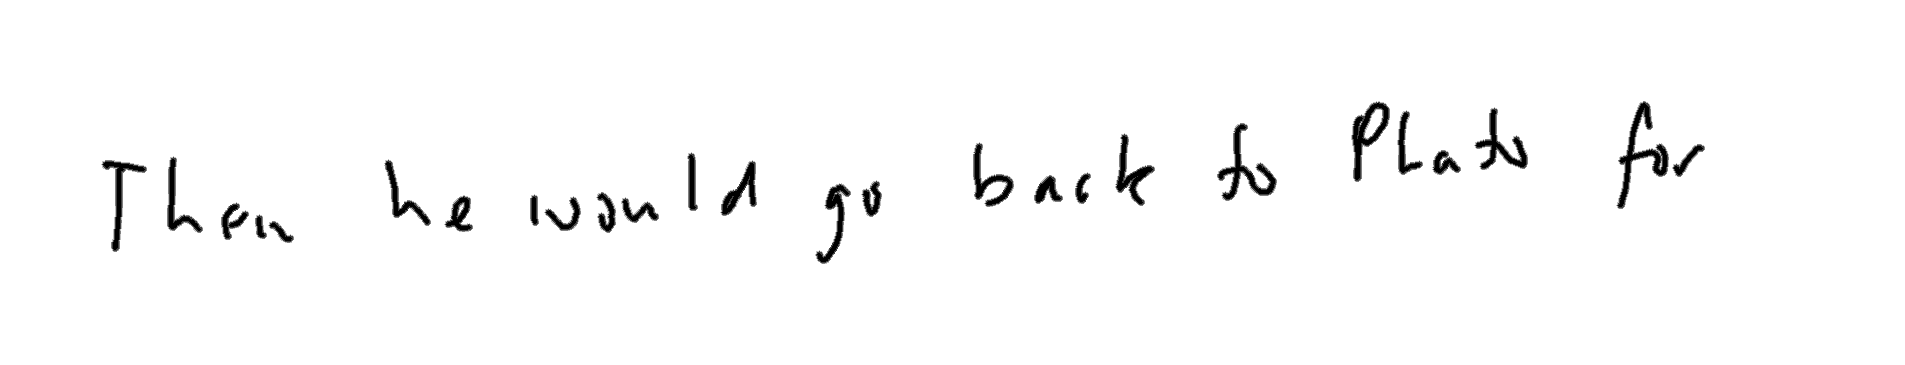 Then he would go back to Plato for